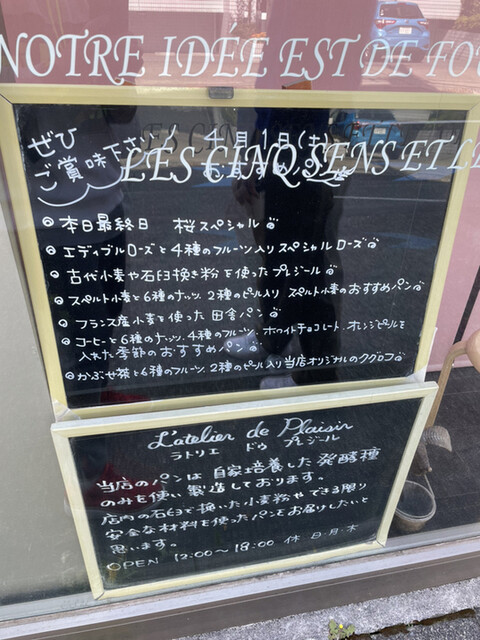 NOTRE IDÉE EST DE FOU
ぜひ
ご賞味下さい
4月1日(土)
LES CINQ SENS ET LE
本日最終日 桜スペシャル
エディブルローズと4種のフルーツ入りスペシャルローズ
古代小麦や石臼挽き粉を使ったプレジール
スペルト小麦と6種のナッツ、2種のピール入り スペルト小麦のおすすめパン
フランス産小麦を使った田舎パン
コーヒーと6種のナッツ、4種のフルーツ、ホワイトチョコレート、オレンジピールを
入れた季節のおすすめパン
かぶせ茶と6種のフルーツ、2種のピール入り当店オリジナルのクグロフ
L'atelier de Plaisir
ラトリエ ドゥ プレジール
当店のパンは自家培養した発酵種
のみを使い製造しております。
店内の石臼で挽いた小麦粉やできる限り
安全な材料を使ったパンをお届けしたいと
思います。
OPEN 12:00～18:00 休 日・月・木